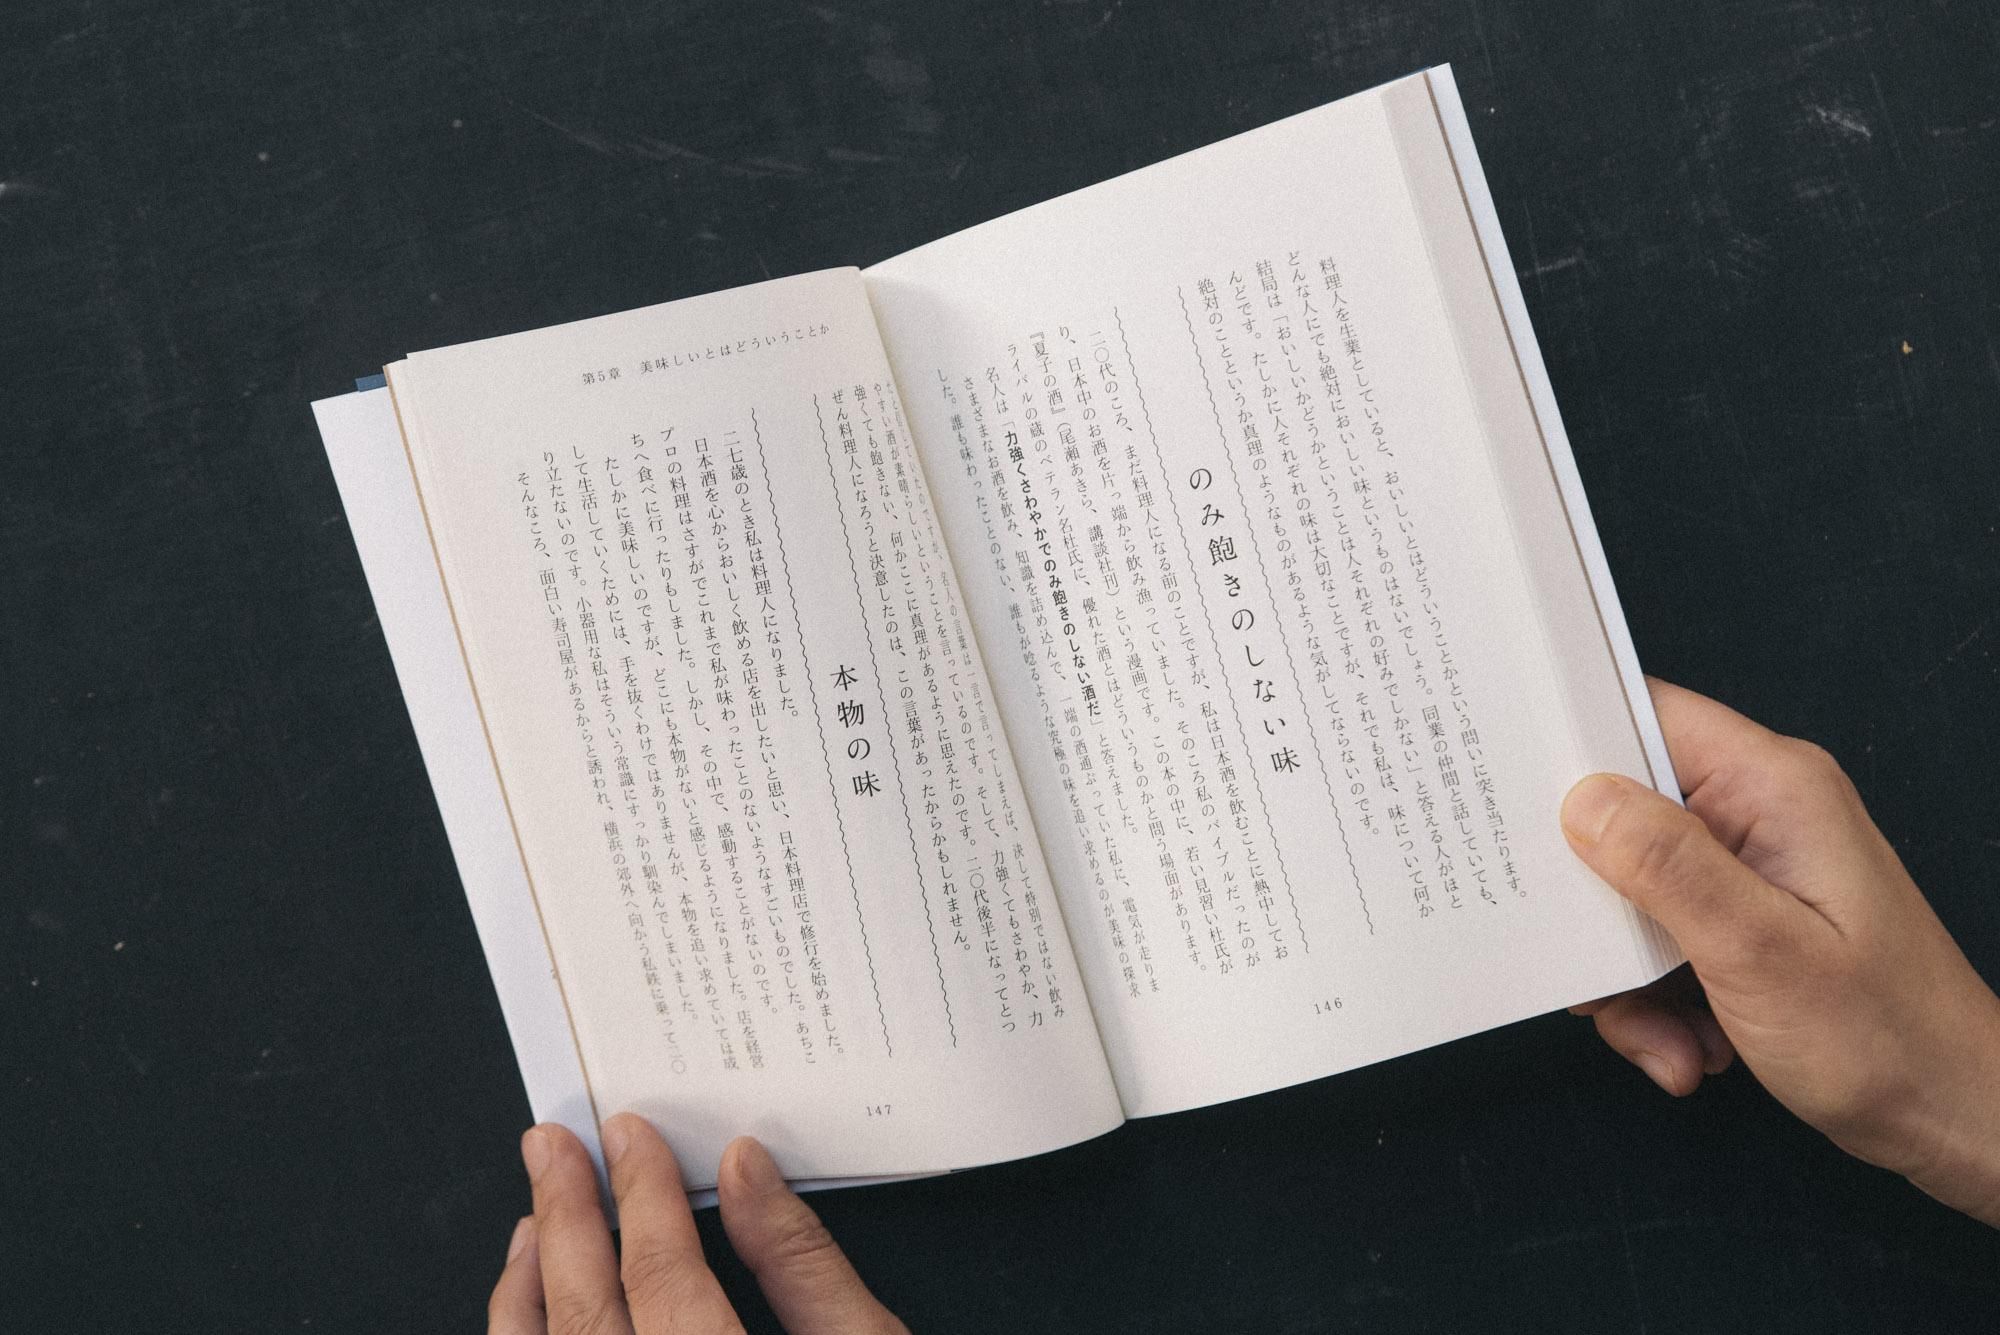 料理人を生業としていると、おいしいとはどういうことかという問いに突き当たります。
どんな人にでも絶対においしい味というものはないでしょう。同業の仲間と話していても、
結局は「おいしいかどうかということは人それぞれの好みでしかない」と答える人がほと
んどです。たしかに人それぞれの味は大切なことですが、それでも私は、味について何か
絶対のことというか真理のようなものがあるような気がしてならないのです。
のみ飽きのしない味
二〇代のころ、まだ料理人になる前のことですが、私は日本酒を飲むことに熱中してお
り、日本中のお酒を片っ端から飲み漁っていました。そのころ私のバイブルだったのが
『夏子の酒』（尾瀬あきら、講談社刊）という漫画です。この本の中に、若い見習い杜氏が
ライバルの蔵のベテラン名杜氏に、優れた酒とはどういうものかと問う場面があります。
名人は「力強くさわやかでのみ飽きのしない酒だ」と答えました。
さまざまなお酒を飲み、知識を詰め込んで、一端の酒通ぶっていた私に、電気が走りま
した。誰も味わったことのない、誰もが唸るような究極の味を追い求めるのが美味の探求
146
第5章 美味しいとはどういうことか
だと思っていたのですが、名人の言葉は一言で言ってしまえば、決して特別ではない飲み
やすい酒が素晴らしいということを言っているのです。そして、力強くてもさわやか、力
強くても飽きない、何かここに真理があるように思えたのです。二〇代後半になってとつ
ぜん料理人になろうと決意したのは、この言葉があったからかもしれません。
本物の味
二七歳のとき私は料理人になりました。
日本酒を心からおいしく飲める店を出したいと思い、日本料理店で修行を始めました。
プロの料理はさすがでこれまで私が味わったことのないようなすごいものでした。あちこ
ちへ食べに行ったりもしました。しかし、その中で、感動することがないのです。
たしかに美味しいのですが、どこにも本物がないと感じるようになりました。店を経営
して生活していくためには、手を抜くわけではありませんが、本物を追い求めていては成
り立たないのです。小器用な私はそういう常識にすっかり馴染んでしまいました。
そんなころ、面白い寿司屋があるからと誘われ、横浜の郊外へ向かう私鉄に乗って二〇
147